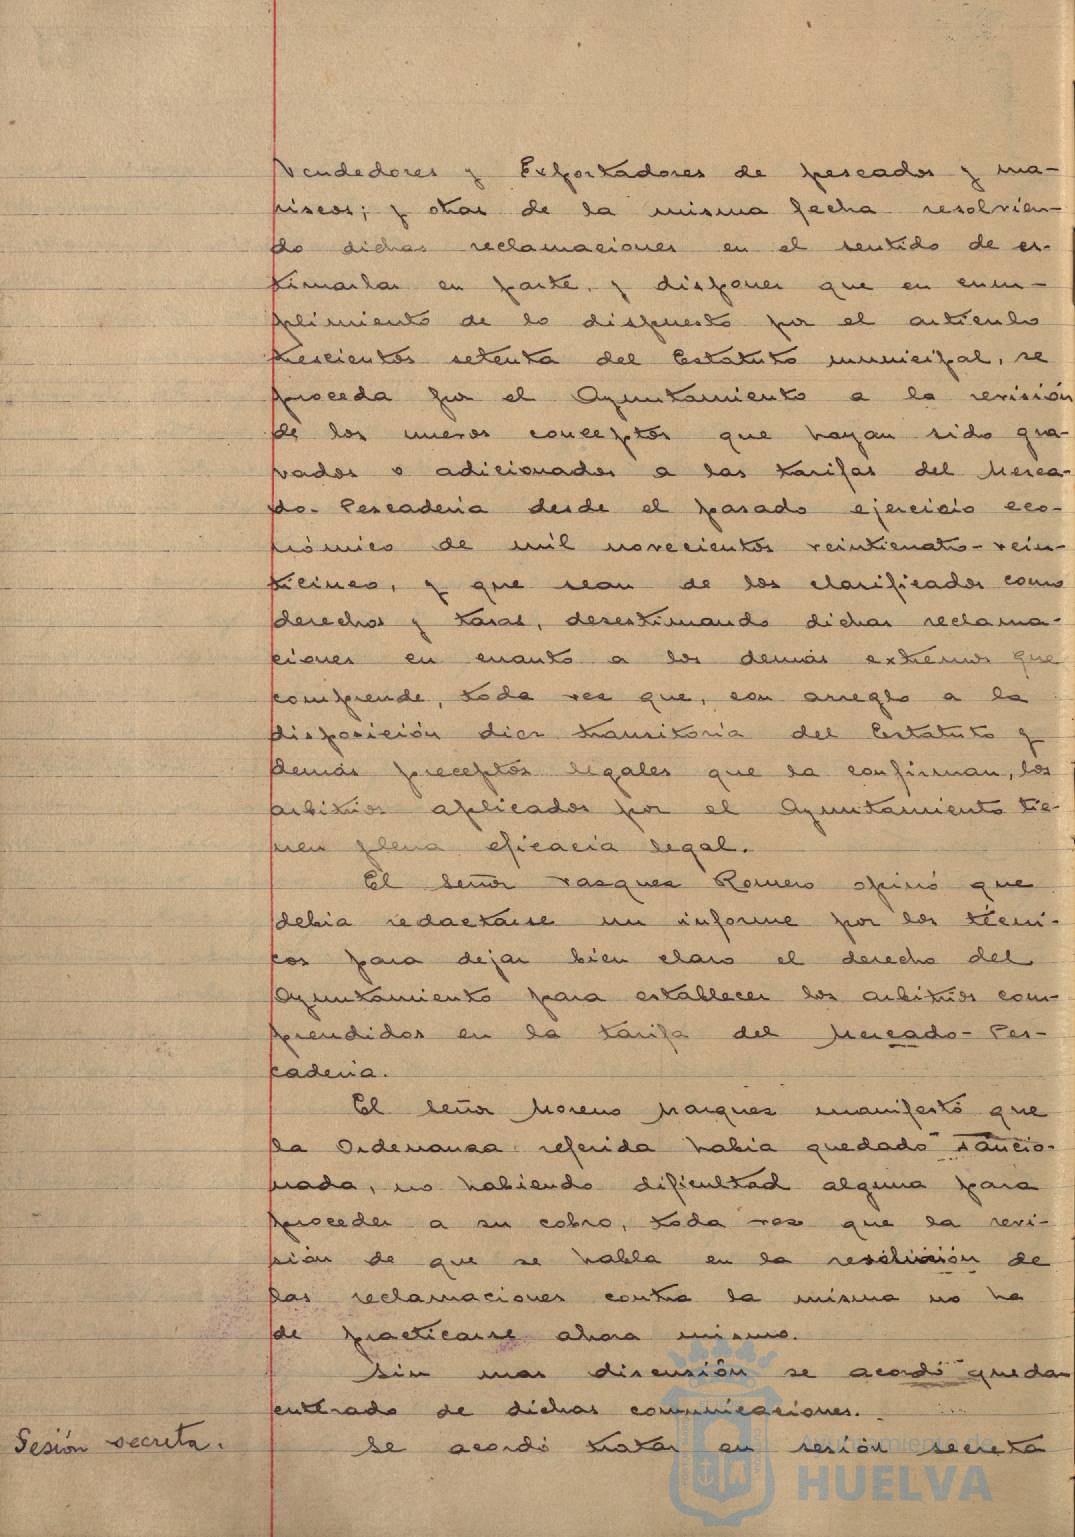 Vendedores y Exportadores de pescados y ma-
riscos; y otras de la misma fecha resolvien-
do dichas reclamaciones en el sentido de es-
timarlas en parte, y disponer que en cum-
plimiento de lo dispuesto por el artículo
trescientos setenta del Estatuto municipal, se
proceda por el Ayuntamiento a la revisión
de los nuevos conceptos que hayan sido gra-
vados o adicionados a las tarifas del Merca-
do-Pescadería desde el pasado ejercicio eco-
nómico de mil novecientos veinticuatro-vein-
ticinco, y que sean de los clasificados como
derechos y tasas, desestimando dichas reclama-
ciones en cuanto a los demás extremos que
comprende, toda vez que, con arreglo a la
disposición diez transitoria del Estatuto y
demás preceptos legales que la confirman, los
arbitrios aplicados por el Ayuntamiento tie-
nen plena eficacia legal.
El Señor Vazquez Romero opinó que
debia redactarse un informe por los técni-
cos para dejar bien claro el derecho del
Ayuntamiento para establecer los arbitrios com-
prendidos en la tarifa del Mercado-Pes-
cadería.
El Señor Moreno Marquez manifestó que
la Ordenanza referida había quedado sancio-
nada, no habiendo dificultad alguna para
proceder a su cobro, toda vez que la revi-
sión de que se habla en la resolución de
las reclamaciones contra la misma no ha
de practicarse ahora mismo.
Sin mas discusión se acordó quedar
enterado de dichas comunicaciones.
Sesión secreta.
Se acordó tratar en sesión secreta
Ayuntamiento de
HUELVA